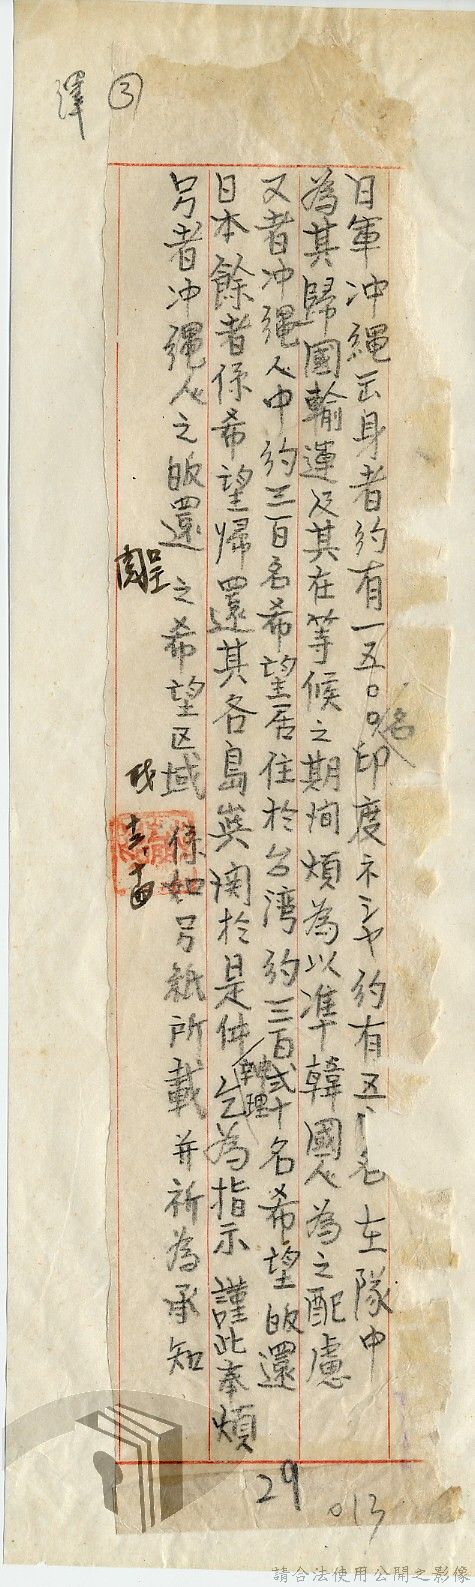 譯 ③
日軍沖縄出身者約有一五〇〇名印度ネシヤ約有五 名在隊中
為其歸國輸運及其在等候之期间煩為以準韓國人為之配慮
又者沖縄人中約三百名希望居住於台湾約三百弍十名希望皈還
日本餘者係希望帰還其各島與関於是件辦理乞為指示謹此奉煩
另者沖縄人之皈還之希望区域係如另紙所載并祈為承知
職呈
29
013
請合法使用公開之影像